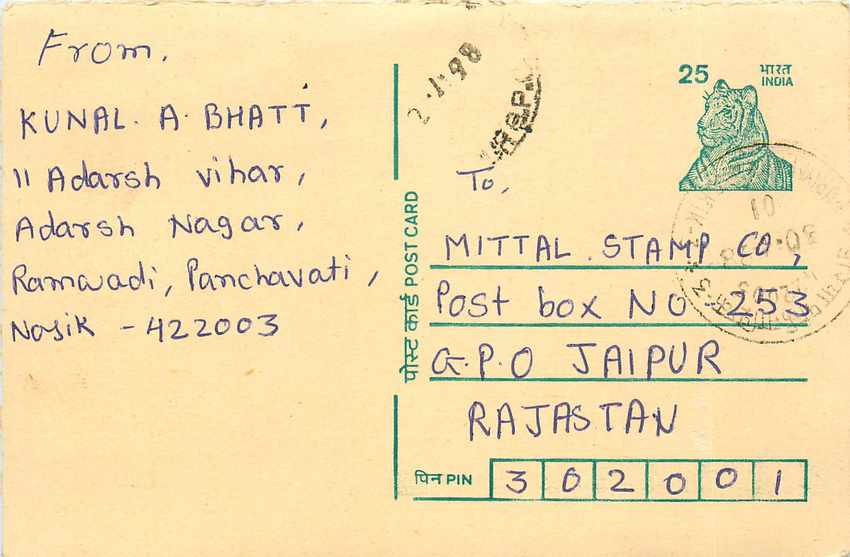 From,
KUNAL. A. BHATT,
11 Adarsh vihar,
Adarsh Nagar,
Ramwadi, Panchavati,
Nasik - 422003
2.1.98
G.P.O.
25
भारत
INDIA
पोस्ट कार्ड POST CARD
To,
MITTAL. STAMP CO,
Post box NO - 253
G.P.O JAIPUR
RAJASTAN
पिन PIN 302001